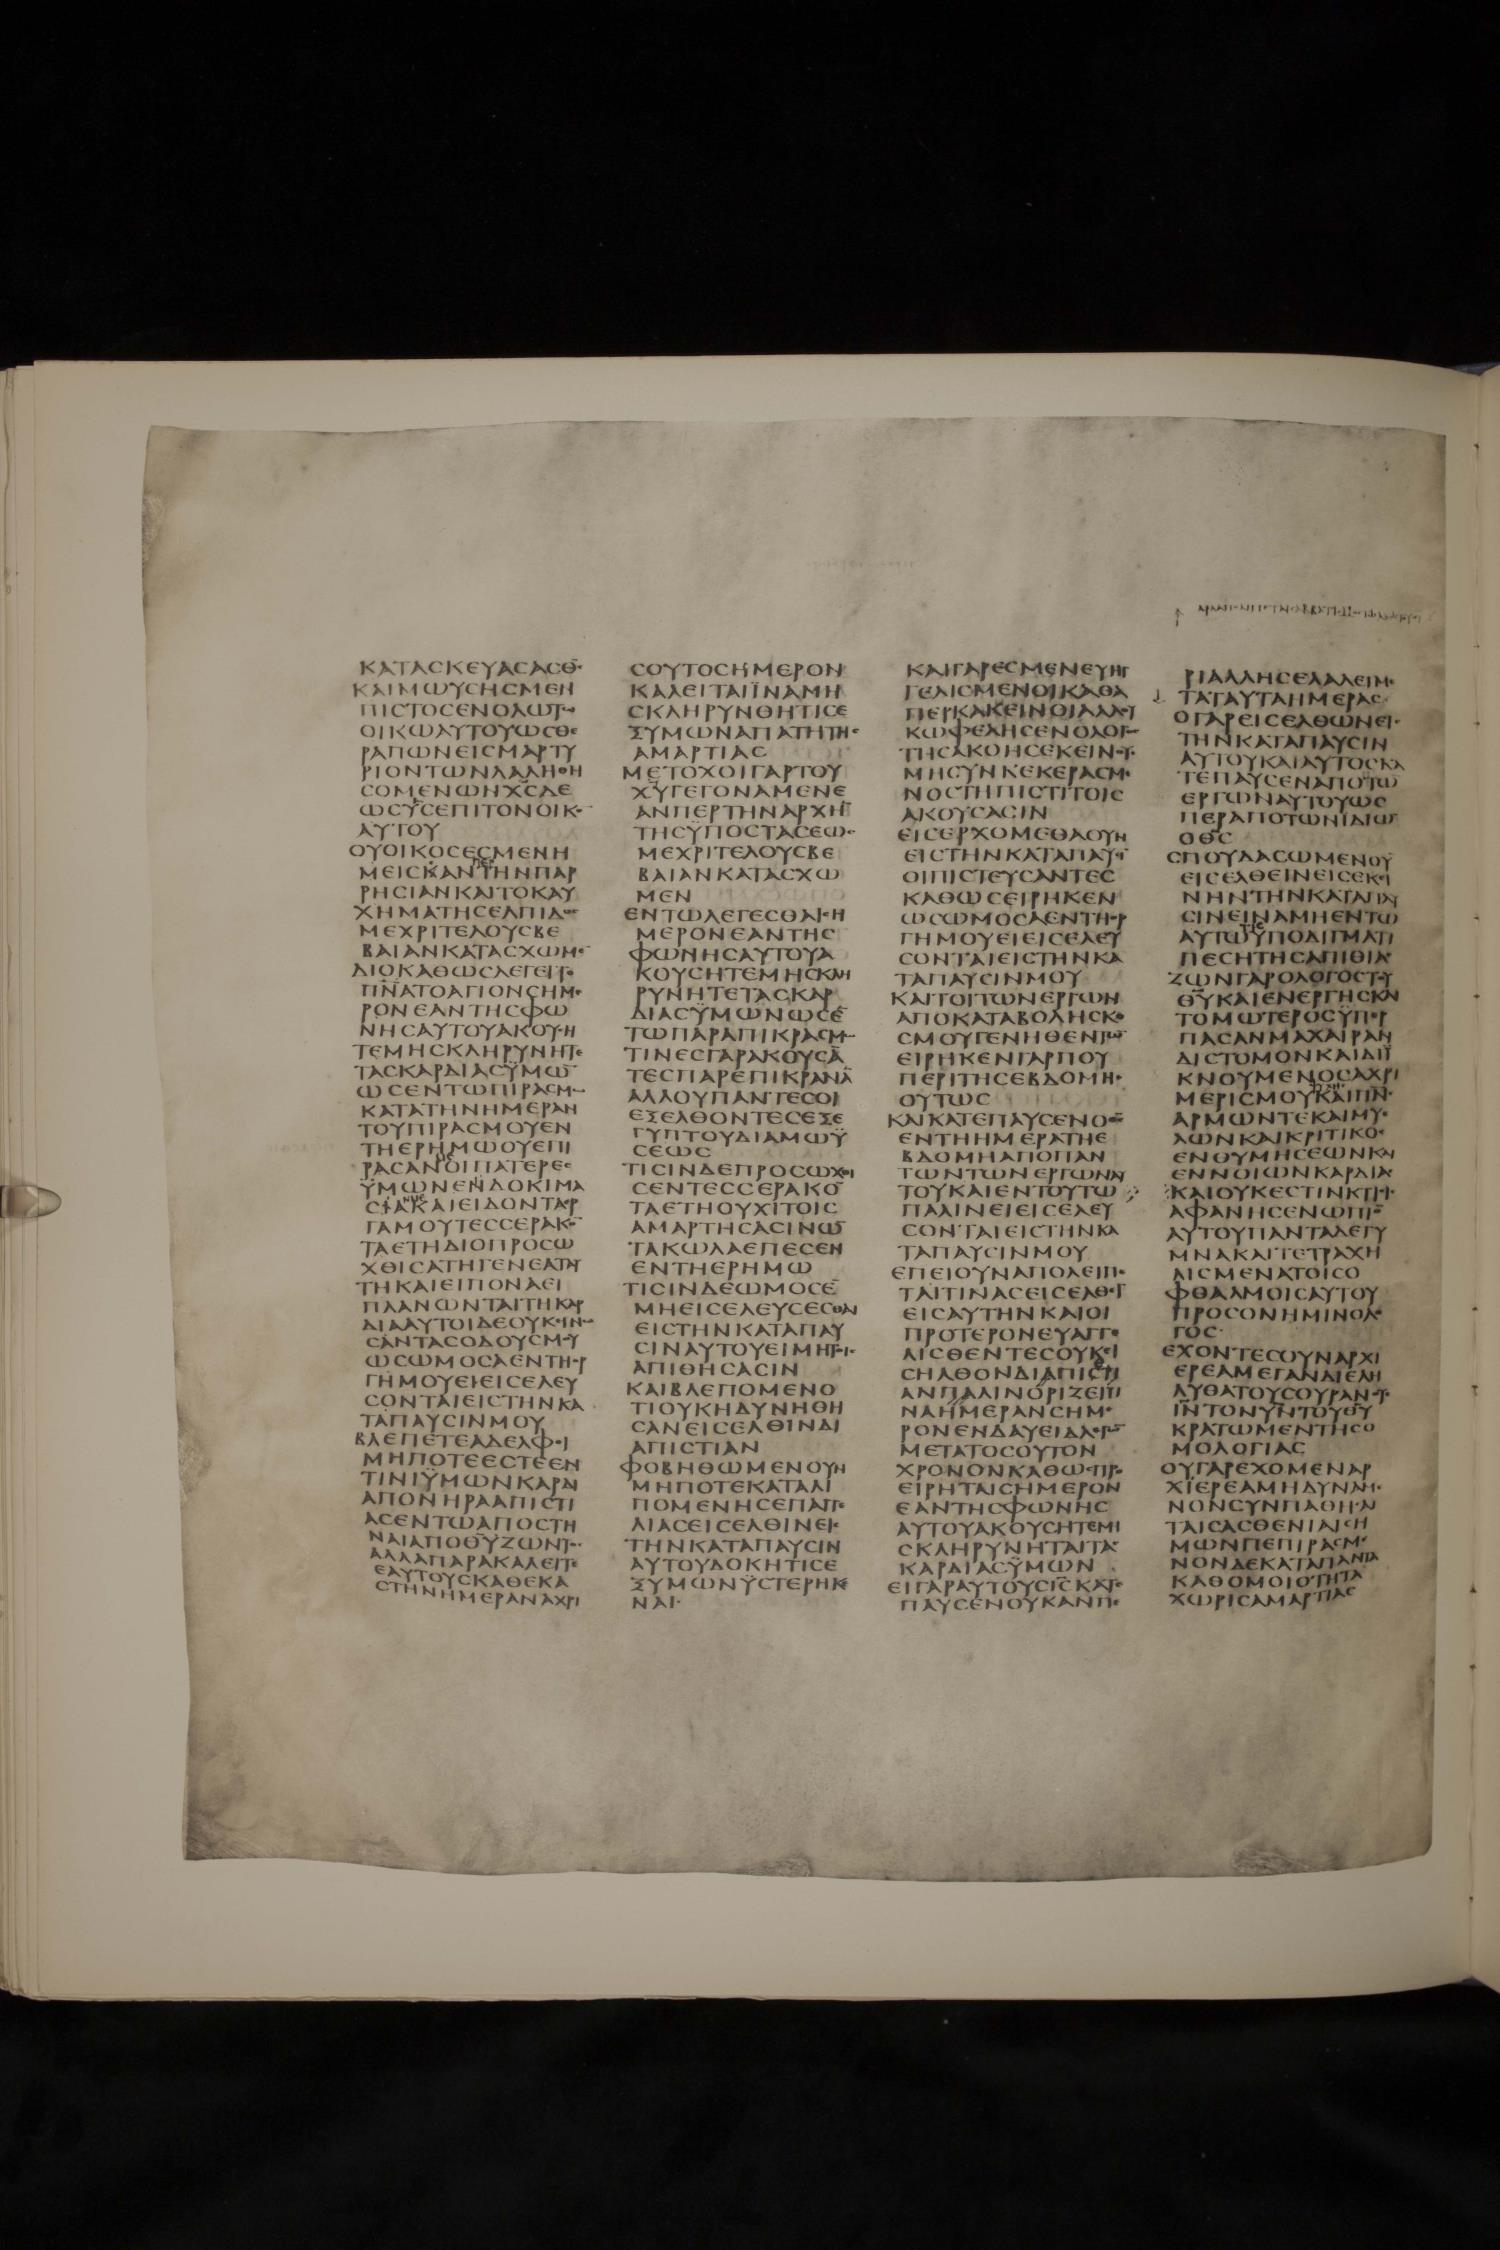 ΚΑΤΑϹΚΕΥΑϹΑϹΘ̅Ϲ
ΚΑΙΜΩΥϹΗϹΜΕΝ
ΠΙϹΤΟϹΕΝΟΛΩΤΩ
ΟΙΚΩΑΥΤΟΥΩϹΘΕ
ΡΑΠΩΝΕΙϹΜΑΡΤΥ
ΡΙΟΝΤΩΝΛΑΛΗΘΗ
ϹΟΜΕΝΩΝΧ̅ϹΔΕ
ΩϹΥ̅ϹΕΠΙΤΟΝΟΙΚΟ̅
ΑΥΤΟΥ
ΟΥΟΙΚΟϹΕϹΜΕΝΗ
ΜΕΙϹΚΑΝΤΗΝΠΑΡ
ΡΗϹΙΑΝΚΑΙΤΟΚΑΥ
ΧΗΜΑΤΗϹΕΛΠΙΔΟϹ
ΜΕΧΡΙΤΕΛΟΥϹΒΕ
ΒΑΙΑΝΚΑΤΑϹΧΩΜΕ̅
ΔΙΟΚΑΘΩϹΛΕΓΕΙΤΟ
ΠΝ̅ΑΤΟΑΓΙΟΝϹΗΜΕ
ΡΟΝΕΑΝΤΗϹΦΩ
ΝΗϹΑΥΤΟΥΑΚΟΥϹΗ
ΤΕΜΗϹΚΛΗΡΥΝΗΤΕ
ΤΑϹΚΑΡΔΙΑϹΫΜΩ̅
ΩϹΕΝΤΩΠΙΡΑϹΜΩ
ΚΑΤΑΤΗΝΗΜΕΡΑΝ
ΤΟΥΠΙΡΑϹΜΟΥΕΝ
ΤΗΕΡΗΜΩΟΥΕΠΙ
ΡΑϹΑΝΟΙΠΑΤΕΡΕϹ
ΫΜΩΝΕΝΔΟΚΙΜΑ
ϹΙΑΚΑΙΕΙΔΟΝΤΑΕΡ
ΓΑΜΟΥΤΕϹϹΕΡΑΚΟ̅
ΤΑΕΤΗΔΙΟΠΡΟϹΩ
ΧΘΙϹΑΤΗΓΕΝΕΑΤΑΥ
ΤΗΚΑΙΕΙΠΟΝΑΕΙ
ΠΛΑΝΩΝΤΑΙΤΗΚΑΡ
ΔΙΑΑΥΤΟΙΔΕΟΥΚΕΓΝΩ
ϹΑΝΤΑϹΟΔΟΥϹΜΟΥ
ΩϹΩΜΟϹΑΕΝΤΗΟΡ
ΓΗΜΟΥΕΙΕΙϹΕΛΕΥ
ϹΟΝΤΑΙΕΙϹΤΗΝΚΑ
ΤΑΠΑΥϹΙΝΜΟΥ
ΒΛΕΠΕΤΕΑΔΕΛΦΟΙ
ΜΗΠΟΤΕΕϹΤΕΕΝ
ΤΙΝΙΫΜΩΝΚΑΡΔΙ
ΑΠΟΝΗΡΑΑΠΙϹΤΙ
ΑϹΕΝΤΩΑΠΟϹΤΗ
ΝΑΙΑΠΟΘ̅ΥΖΩΝΤΟϹ
ΑΛΛΑΠΑΡΑΚΑΛΕΙΤΕ
ΕΑΥΤΟΥϹΚΑΘΕΚΑ
ϹΤΗΝΗΜΕΡΑΝΑΧΡΙ
ϹΟΥΤΟϹΗΜΕΡΟΝ
ΚΑΛΕΙΤΑΙΪΝΑΜΗ
ϹΚΛΗΡΥΝΘΗΤΙϹΕ
ΞΥΜΩΝΑΠΑΤΗΤΗϹ
ΑΜΑΡΤΙΑϹ
ΜΕΤΟΧΟΙΓΑΡΤΟΥ
Χ̅ΥΓΕΓΟΝΑΜΕΝΕ
ΑΝΠΕΡΤΗΝΑΡΧΗ̅
ΤΗϹΫΠΟϹΤΑϹΕΩϹ
ΜΕΧΡΙΤΕΛΟΥϹΒΕ
ΒΑΙΑΝΚΑΤΑϹΧΩ
ΜΕΝ
ΕΝΤΩΛΕΓΕϹΘΑΙϹΗ
ΜΕΡΟΝΕΑΝΤΗϹ
ΦΩΝΗϹΑΥΤΟΥΑ
ΚΟΥϹΗΤΕΜΗϹΚΛΗ
ΡΥΝΗΤΕΤΑϹΚΑΡ
ΔΙΑϹΫΜΩΝΩϹΕ̅
ΤΩΠΑΡΑΠΙΚΡΑϹΜΩ
ΤΙΝΕϹΓΑΡΑΚΟΥϹΑ̅
ΤΕϹΠΑΡΕΠΙΚΡΑΝΑ̅
ΑΛΛΟΥΠΑΝΤΕϹΟΙ
ΕΞΕΛΘΟΝΤΕϹΕΞΕ
ΓΥΠΤΟΥΔΙΑΜΩΫ
ϹΕΩϹ
ΤΙϹΙΝΔΕΠΡΟϹΩΧΘΙ
ϹΕΝΤΕϹϹΕΡΑΚΟ̅
ΤΑΕΤΗΟΥΧΙΤΟΙϹ
ΑΜΑΡΤΗϹΑϹΙΝΩ̅
ΤΑΚΩΛΑΕΠΕϹΕΝ
ΕΝΤΗΕΡΗΜΩ
ΤΙϹΙΝΔΕΩΜΟϹΕ̅
ΜΗΕΙϹΕΛΕΥϹΕϹΘΑΙ
ΕΙϹΤΗΝΚΑΤΑΠΑΥ
ϹΙΝΑΥΤΟΥΕΙΜΗΤΟΙϹ
ΑΠΙΘΗϹΑϹΙΝ
ΚΑΙΒΛΕΠΟΜΕΝΟ
ΤΙΟΥΚΗΔΥΝΗΘΗ
ϹΑΝΕΙϹΕΛΘΙΝΔΙ
ΑΠΙϹΤΙΑΝ
ΦΟΒΗΘΩΜΕΝΟΥΝ
ΜΗΠΟΤΕΚΑΤΑΛΙ
ΠΟΜΕΝΗϹΕΠΑΓΓΕ
ΛΙΑϹΕΙϹΕΛΘΙΝΕΙϹ
ΤΗΝΚΑΤΑΠΑΥϹΙΝ
ΑΥΤΟΥΔΟΚΗΤΙϹΕ
ΞΥΜΩΝΫϹΤΕΡΗΚΕ
ΝΑΙ·
ΚΑΙΓΑΡΕϹΜΕΝΕΥΗΓ
ΓΕΛΙϹΜΕΝΟΙΚΑΘΑ
ΠΕΡΚΑΚΕΙΝΟΙΑΛΛΟΥ
ΚΩΦΕΛΗϹΕΝΟΛΟΓΟϹ
ΤΗϹΑΚΟΗϹΕΚΕΙΝΟΥϹ
ΜΗϹΥΝΚΕΚΕΡΑϹΜΕ
ΝΟϹΤΗΠΙϹΤΙΤΟΙϹ
ΑΚΟΥϹΑϹΙΝ
ΕΙϹΕΡΧΟΜΕΘΑΟΥΝ
ΕΙϹΤΗΝΚΑΤΑΠΑΥϹΙ̅
ΟΙΠΙϹΤΕΥϹΑΝΤΕϹ
ΚΑΘΩϹΕΙΡΗΚΕΝ
ΩϹΩΜΟϹΑΕΝΤΗΟΡ
ΓΗΜΟΥΕΙΕΙϹΕΛΕΥ
ϹΟΝΤΑΙΕΙϹΤΗΝΚΑ
ΤΑΠΑΥϹΙΝΜΟΥ
ΚΑΙΤΟΙΤΩΝΕΡΓΩΝ
ΑΠΟΚΑΤΑΒΟΛΗϹΚΟ
ϹΜΟΥΓΕΝΗΘΕΝΤΩ̅
ΕΙΡΗΚΕΝΓΑΡΠΟΥ
ΠΕΡΙΤΗϹΕΒΔΟΜΗϹ
ΟΥΤΩϹ
ΚΑΙΚΑΤΕΠΑΥϹΕΝΟΘ̅Ϲ
ΕΝΤΗΗΜΕΡΑΤΗΕ
ΒΔΟΜΗΑΠΟΠΑΝ
ΤΩΝΤΩΝΕΡΓΩΝΑΥ
ΤΟΥΚΑΙΕΝΤΟΥΤΩ
ΠΑΛΙΝΕΙΕΙϹΕΛΕΥ
ϹΟΝΤΑΙΕΙϹΤΗΝΚΑ
ΤΑΠΑΥϹΙΝΜΟΥ
ΕΠΕΙΟΥΝΑΠΟΛΕΙΠΕ
ΤΑΙΤΙΝΑϹΕΙϹΕΛΘΕΙ̅
ΕΙϹΑΥΤΗΝΚΑΙΟΙ
ΠΡΟΤΕΡΟΝΕΥΑΓΓΕ
ΛΙϹΘΕΝΤΕϹΟΥΚΕΙ
ϹΗΛΘΟΝΔΙΑΠΙϹΤΙ
ΑΝΠΑΛΙΝΟΡΙΖΕΙΤΙ
ΝΑΗΜΕΡΑΝϹΗΜΕ
ΡΟΝΕΝΔΑΥΕΙΔΛΕΓΩ̅
ΜΕΤΑΤΟϹΟΥΤΟΝ
ΧΡΟΝΟΝΚΑΘΩϹΠΡΟ
ΕΙΡΗΤΑΙϹΗΜΕΡΟΝ
ΕΑΝΤΗϹΦΩΝΗϹ
ΑΥΤΟΥΑΚΟΥϹΗΤΕΜΗ
ϹΚΛΗΡΥΝΗΤΑΙΤΑϹ
ΚΑΡΔΙΑϹΫΜΩΝ
ΕΙΓΑΡΑΥΤΟΥϹΙ̅ϹΚΑΤΕ
ΠΑΥϹΕΝΟΥΚΑΝΠΕ
ΡΙΑΛΛΗϹΕΛΑΛΕΙΜΕ
ΤΑΤΑΥΤΑΗΜΕΡΑϹ
ΟΓΑΡΕΙϹΕΛΘΩΝΕΙϹ
ΤΗΝΚΑΤΑΠΑΥϹΙΝ
ΑΥΤΟΥΚΑΙΑΥΤΟϹΚΑ
ΤΕΠΑΥϹΕΝΑΠΟΤΩ̅
ΕΡΓΩΝΑΥΤΟΥΩϹ
ΠΕΡΑΠΟΤΩΝΙΔΙΩ̅
ΟΘ̅Ϲ
ϹΠΟΥΔΑϹΩΜΕΝΟΥ̅
ΕΙϹΕΛΘΕΙΝΕΙϹΕΚΙ
ΝΗΝΤΗΝΚΑΤΑΠΑΥ
ϹΙΝΕΙΝΑΜΗΕΝΤΩ
ΑΥΤΩΫΠΟΔΙΓΜΑΤΙ
ΠΕϹΗΤΗϹΑΠΙΘΙΑϹ
ΖΩΝΓΑΡΟΛΟΓΟϹΤΟΥ
Θ̅ΥΚΑΙΕΝΕΡΓΗϹΚΑΙ
ΤΟΜΩΤΕΡΟϹΫΠΕΡ
ΠΑϹΑΝΜΑΧΑΙΡΑΝ
ΔΙϹΤΟΜΟΝΚΑΙΔΙΪ
ΚΝΟΥΜΕΝΟϹΑΧΡΙ
ΜΕΡΙϹΜΟΥΚΑΙΠΝ̅Ϲ
ΑΡΜΩΝΤΕΚΑΙΜΥΕ
ΛΩΝΚΑΙΚΡΙΤΙΚΟϹ
ΕΝΘΥΜΗϹΕΩΝΚΑΙ
ΕΝΝΟΙΩΝΚΑΡΔΙΑϹ
ΚΑΙΟΥΚΕϹΤΙΝΚΤΙϹΙϹ
ΑΦΑΝΗϹΕΝΩΠΙΟ̅
ΑΥΤΟΥΠΑΝΤΑΔΕΓΥ
ΜΝΑΚΑΙΤΕΤΡΑΧΗ
ΛΙϹΜΕΝΑΤΟΙϹΟ
ΦΘΑΛΜΟΙϹΑΥΤΟΥ
ΠΡΟϹΟΝΗΜΙΝΟΛΟ
ΓΟϹ·
ΕΧΟΝΤΕϹΟΥΝΑΡΧΙ
ΕΡΕΑΜΕΓΑΝΔΙΕΛΗ
ΛΥΘΑΤΟΥϹΟΥΡΑΝΟΥϹ
Ι̅ΝΤΟΝΥ̅ΝΤΟΥΘ̅Υ
ΚΡΑΤΩΜΕΝΤΗϹΟ
ΜΟΛΟΓΙΑϹ
ΟΥΓΑΡΕΧΟΜΕΝΑΡ
ΧΙΕΡΕΑΜΗΔΥΝΑΜΕ
ΝΟΝϹΥΝΠΑΘΗϹΑΙ
ΤΑΙϹΑϹΘΕΝΙΑΙϹΗ
ΜΩΝΠΕΠΙΡΑϹΜΕ
ΝΟΝΔΕΚΑΤΑΠΑΝΤΑ
ΚΑΘΟΜΟΙΟΤΗΤΑ
ΧΩΡΙϹΑΜΑΡΤΙΑϹ